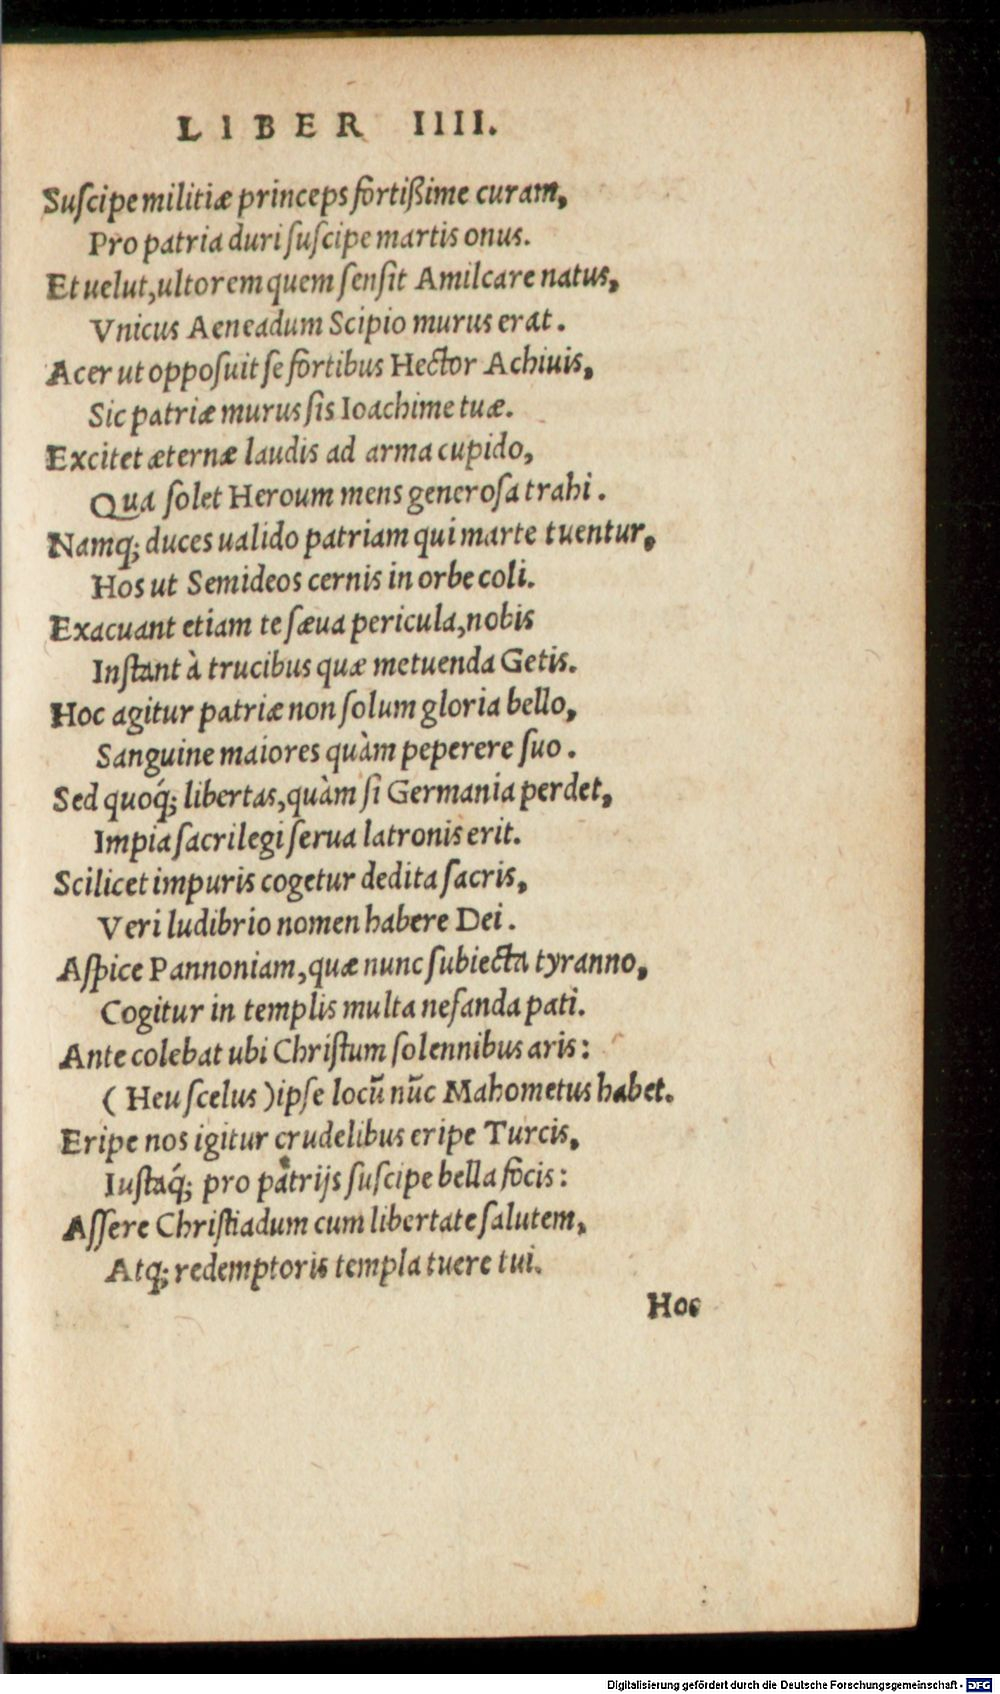 LIBER IIII.
Suſcipe militiæ princeps fortißime curam,
Pro patria duri ſuſcipe martis onus.
Et uelut, ultorem quem ſenſit Amilcare natus,
Vnicus Aeneadum Scipio murus erat.
Acer ut oppoſuit ſe fortibus Hector Achiuis,
Sic patriæ murus ſis Ioachime tuæ.
Excitet æternæ laudis ad arma cupido,
Qua ſolet Heroum mens generoſa trahi.
Namq; duces ualido patriam qui marte tuentur,
Hos ut Semideos cernis in orbe coli.
Exacuant etiam te ſæua pericula, nobis
Inſtant à trucibus quæ metuenda Getis.
Hoc agitur patriæ non ſolum gloria bello,
Sanguine maiores quàm peperere ſuo.
Sed quoq́; libertas, quàm ſi Germania perdet,
Impia ſacrilegi ſerua latronis erit.
Scilicet impuris cogetur dedita ſacris,
Veri ludibrio nomen habere Dei.
Aſpice Pannoniam, quæ nunc ſubiecta tyranno,
Cogitur in templis multa nefanda pati.
Ante colebat ubi Chriſtum ſolennibus aris:
(Heu ſcelus) ipſe locũ nũc Mahometus habet.
Eripe nos igitur crudelibus eripe Turcis,
Iuſtaq́; pro patrijs ſuſcipe bella focis:
Aſſere Chriſtiadum cum libertate ſalutem,
Atq; redemptoris templa tuere tui.
Hoc
Digitalisierung gefördert durch die Deutsche Forschungsgemeinschaft - DFG